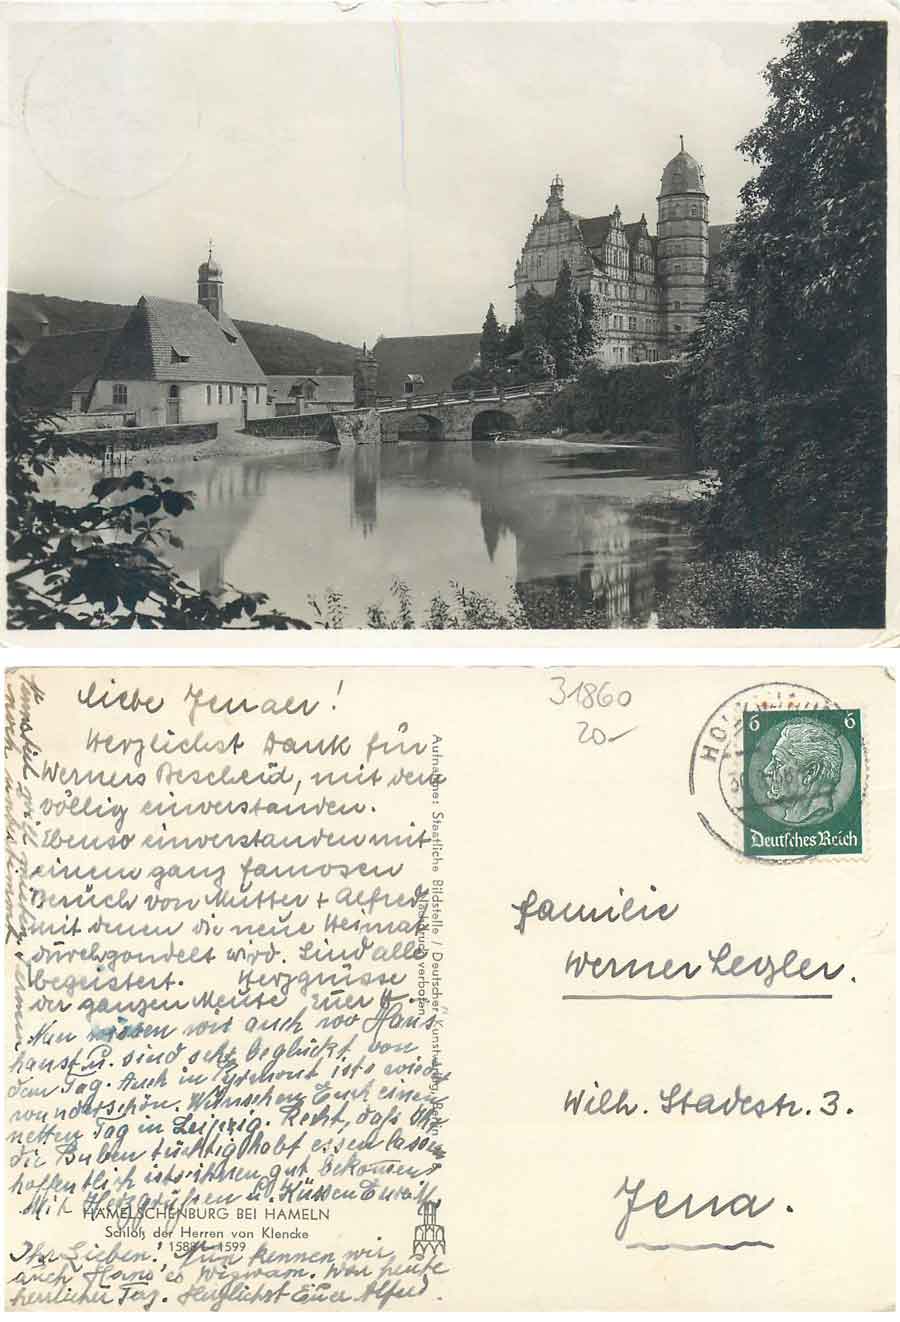 Liebe Jenaer!
Herzlichst Dank für
Werners Bescheid, mit dem
völlig einverstanden.
Ebenso einverstanden mit
einem ganz famosen
Besuch von Mutter + Alfred
mit denen die neue Heimat
durchgondelt wird. Sind alle
begeistert. Herzgrüsse
der ganzen Meute Euer H.
Nun wissen wir auch wo Hans
haust u. sind sehr beglückt von
dem Tag. Auch in Pyrmont ists wieder
wunderschön. Wünschen Euch einen
netten Tag in Leipzig. Recht, daß Ihr
die Buben tüchtig habt essen lassen
hoffentlich ists ihnen gut bekommen
Mit Herzgrüßen u. Küssen Eure
HÄMELSCHENBURG BEI HAMELN
Schloß der Herren von Klencke
1588 1599
Ihr Lieben! Nun kennen wir
auch Hans'es Wigwam. War heute
herrlicher Tag. Herzlichst Euer Alfred.
noch unbestimmt
Aufnahme: Staatliche Bildstelle / Deutscher Kunstverlag, Berlin
Nachdruck verboten
31860
20-
6 6
Deutsches Reich
Familie
Werner Lezler.
Wilh. Stadestr. 3.
Jena.